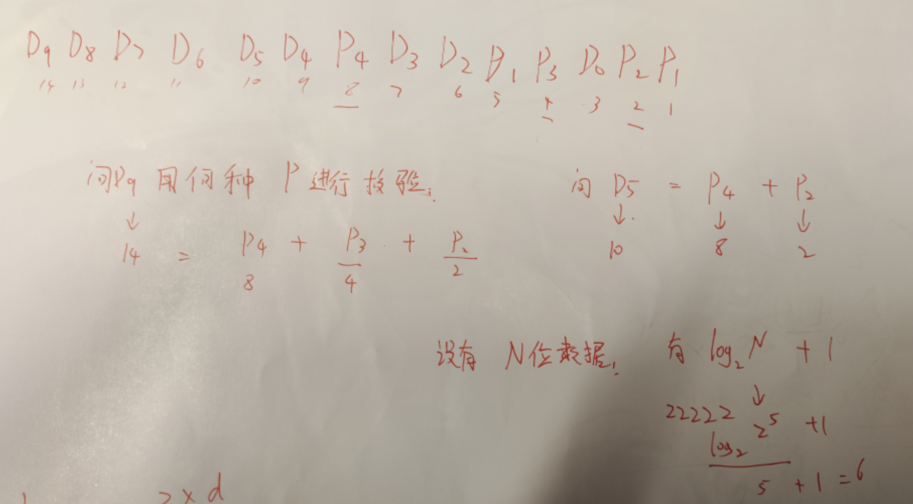 D9 D8 D7 D6 D5 D4 P4 D3 D2 D1 P3 D0 P2 P1
14 13 12 11 10 9 8 7 6 5 4 3 2 1
问D9用何种P进行校验. 问 D5 = P4 + P2
↓ ↓ ↓ ↓
14 = P4 + P3 + P2 10 8 2
8 4 2
设有 N位数据. 有 log₂N + 1
↓
22222 log₂2⁵ +1
5 + 1 = 6
2×d